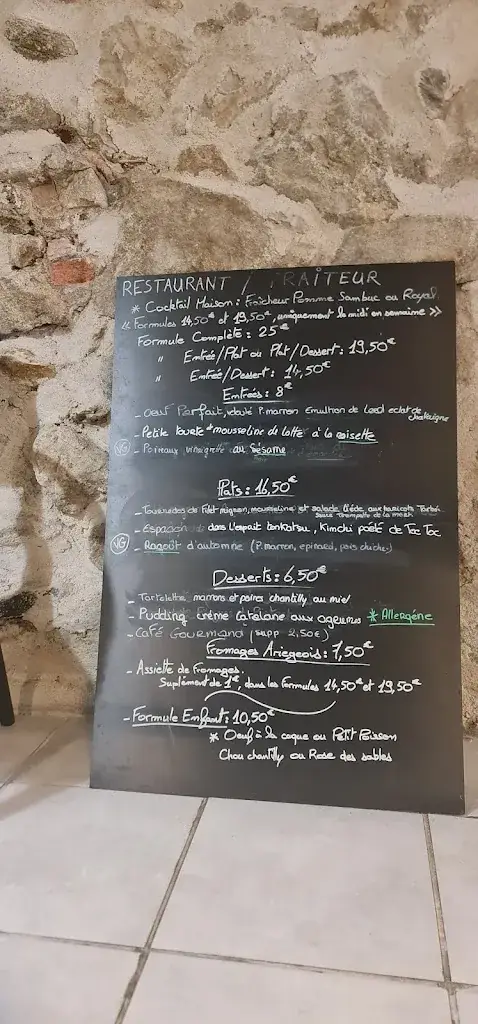 RESTAURANT / TRAITEUR
* Cocktail Maison : Fraîcheur Pomme Sambuc ou Royal.
<< Formules 14,50€ et 19,50€, uniquement le midi en semaine >>
Formule Complète : 25€
" Entrée/Plat ou Plat/Dessert : 19,50€
" Entrée/Dessert : 14,50€
Entrées : 8€
- Oeuf Parfait, velouté P.marron Emultion de Lard eclat de chataigne
- Petite tourte mousseline de lotte à la noisette
VG - Poireaux vinaigrette au Sésame
Plats : 16,50€
- de Filet mignon, mousseline et salade tiède aux haricots
- Espadon dans l'esprit tonkatsu, Kimchi poélé de Toc Toc
VG - Ragoût d'automne (P.marron, epinard, pois chiche)
Desserts : 6,50€
- Tartelette marrons et poires chantilly au miel
- Pudding crème Catalane aux agrumes * Allergéne
- Café Gourmand (supp 2,50€)
Fromages Ariegeois : 7,50€
- Assiette de fromages.
Suplément de 1€, dans les formules 14,50€ et 19,50€
- Formule Enfant : 10,50€
* Oeuf à la coque ou Petit Poisson
Chou chantilly ou Rose des sables